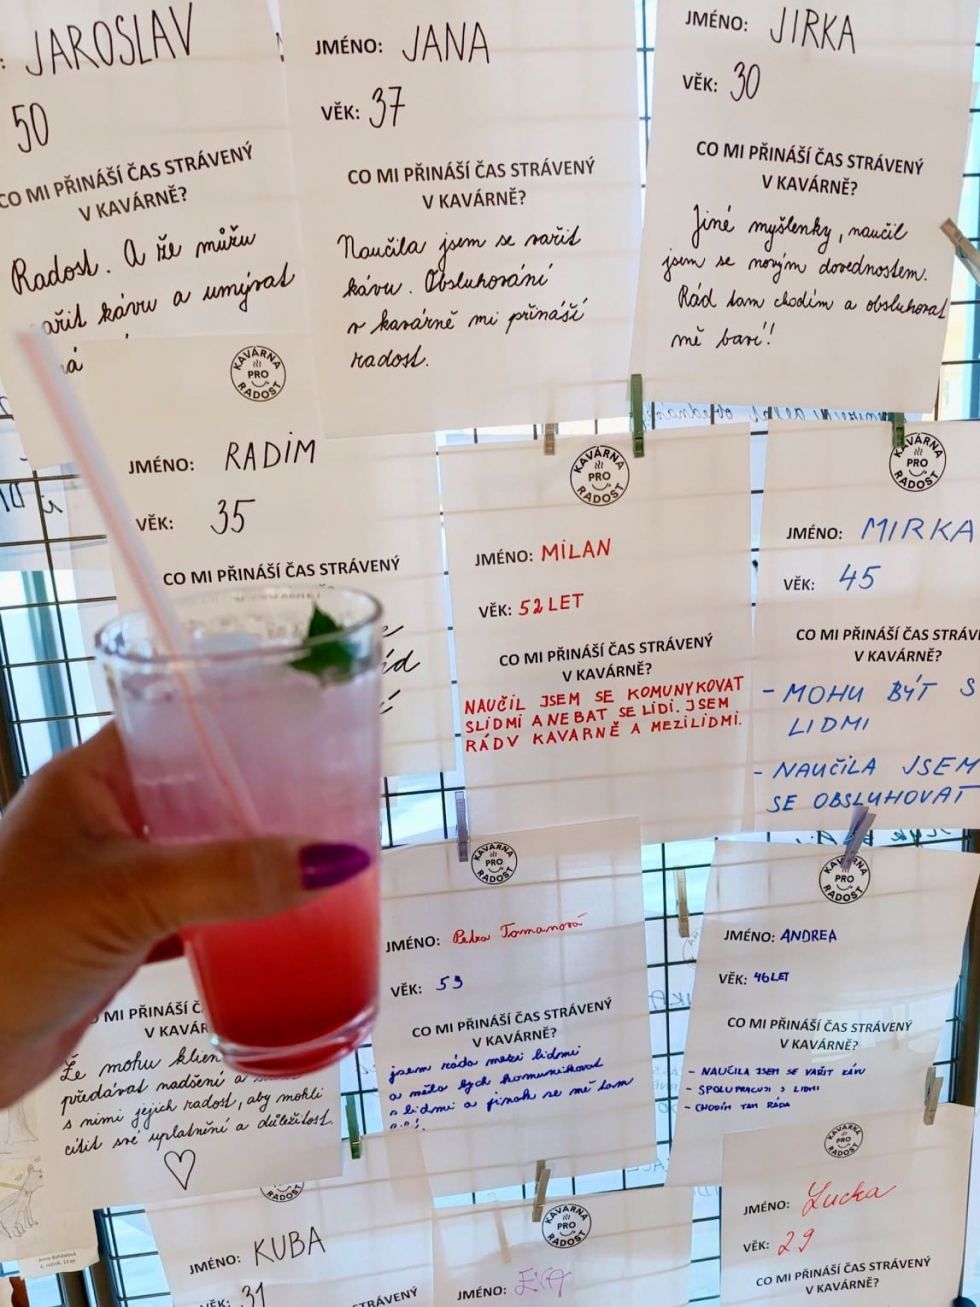 JAROSLAV
50
CO MI PŘINÁŠÍ ČAS STRÁVENÝ
V KAVÁRNĚ?
Radost. A že můžu
vařit kávu a umývat
JMÉNO: JANA
VĚK: 37
CO MI PŘINÁŠÍ ČAS STRÁVENÝ
V KAVÁRNĚ?
Naučila jsem se vařit
kávu. Obsluhování
v kavárně mi přináší
radost.
JMÉNO: JIRKA
VĚK: 30
CO MI PŘINÁŠÍ ČAS STRÁVENÝ
V KAVÁRNĚ?
Jiné myšlenky, naučil
jsem se novým dovednostem.
Rád tam chodím a obsluhovat
mě baví!
KAVÁRNA
PRO
RADOST
JMÉNO: RADIM
VĚK: 35
CO MI PŘINÁŠÍ ČAS STRÁVENÝ
KAVÁRNA
PRO
RADOST
JMÉNO: MILAN
VĚK: 52 LET
CO MI PŘINÁŠÍ ČAS STRÁVENÝ
V KAVÁRNĚ?
NAUČIL JSEM SE KOMUNYKOVAT
SLIDMI A NEBAT SE LIDÍ. JSEM
RÁDV KAVARNĚ A MEZILIDMI.
KAVÁRNA
PRO
RADOST
JMÉNO: MIRKA
VĚK: 45
CO MI PŘINÁŠÍ ČAS STRÁV
V KAVÁRNĚ?
- MOHU BÝT S
LIDMI
- NAUČILA JSEM
SE OBSLUHOVAT
MI PŘINÁŠÍ Č
V KAVÁR
Že mohu klien
předávat nadšení a
s nimi jejich radost, aby mohli
cítit své uplatnění a důležitost.
KAVÁRNA
PRO
RADOST
JMÉNO: Petra Tomanová
VĚK: 53
CO MI PŘINÁŠÍ ČAS STRÁVENÝ
V KAVÁRNĚ?
jsem ráda mezi lidmi
a měla bych komunikovat
s lidmi a jinak se mě tam
KAVÁRNA
PRO
RADOST
JMÉNO: ANDREA
VĚK: 46 LET
CO MI PŘINÁŠÍ ČAS STRÁVENÝ
V KAVÁRNĚ?
- NAUČILA JSEM SE VAŘIT KÁVU
- SPOLUPRACUJI S LIDMI
- CHODÍM TAM RÁDA
RADOST
JMÉNO: KUBA
VĚK: 31
STRÁVENÝ
KAVÁRNA
PRO
RADOST
JMÉNO: EVA
KAVÁRNA
PRO
RADOST
JMÉNO: Lucka
VĚK: 29
CO MI PŘINÁŠÍ ČAS STRÁVENÝ
V KAVÁRNĚ?